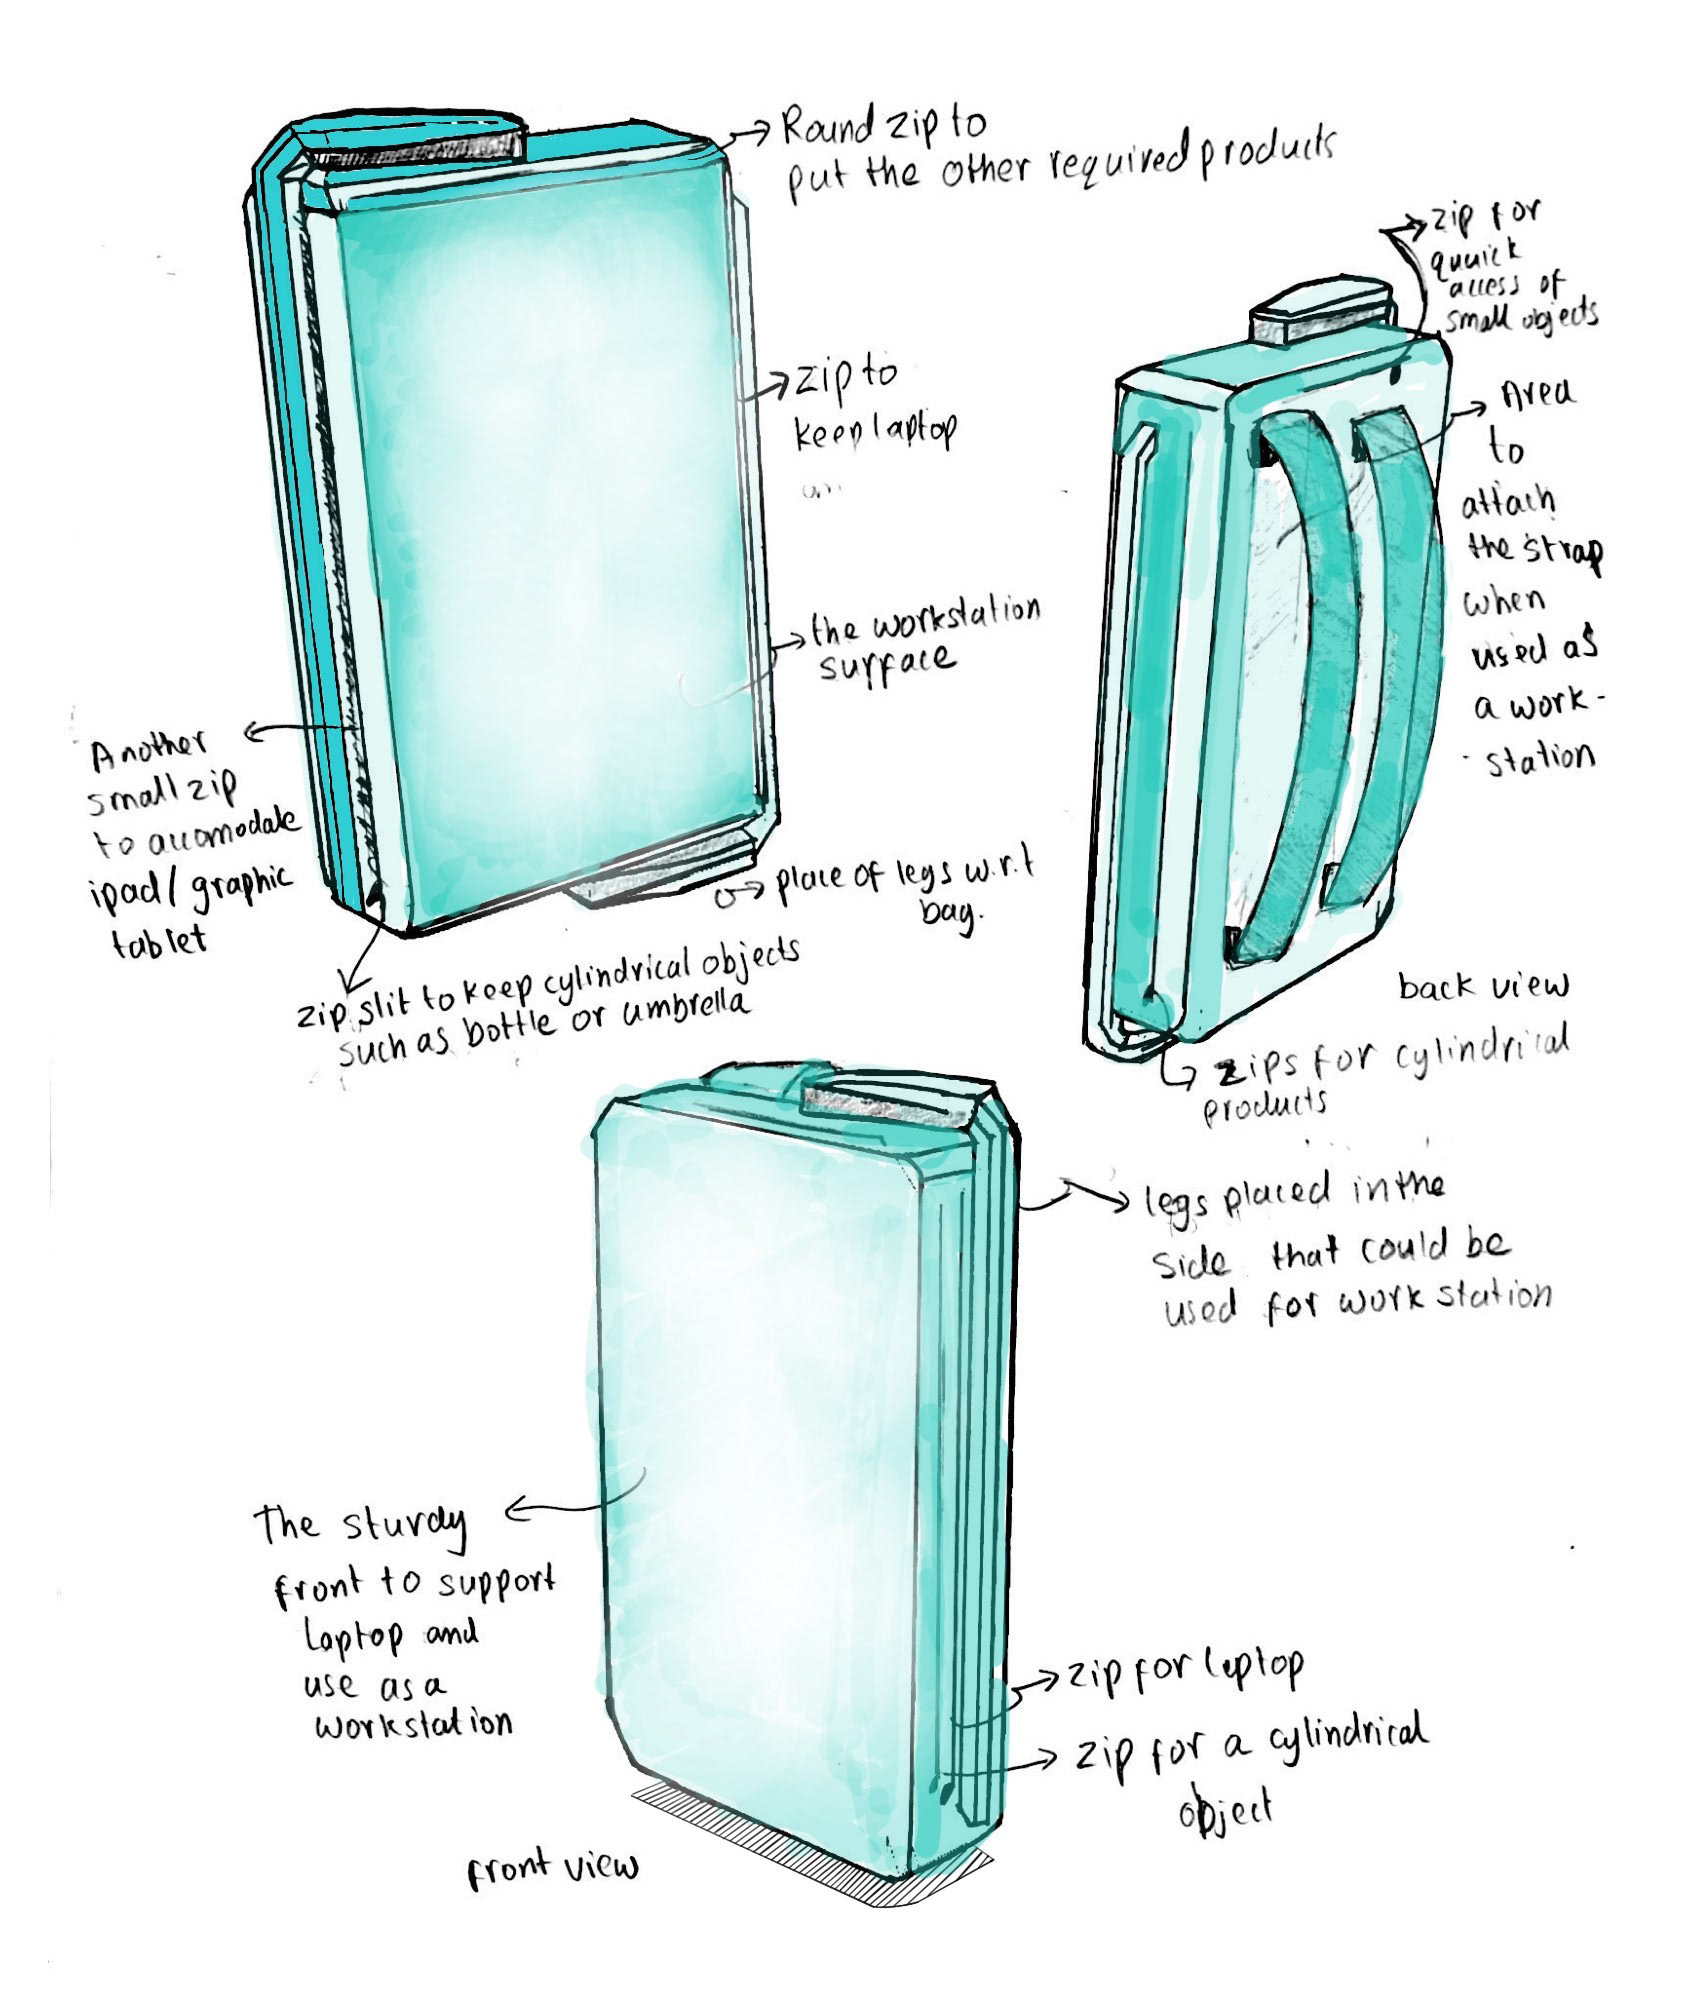 Round zip to
put the other required products
zip for
quuick
access of
small objects
zip to
keep laptop
Area
to
attach
the strap
when
used as
a work-
-station
the workstation
surface
Another
small zip
to accomodate
ipad/graphic
tablet
place of legs w.r.t
bag.
zip slit to keep cylindrical objects
such as bottle or umbrella
back view
zips for cylindrical
products
legs placed in the
side that could be
used for work station
The sturdy
front to support
laptop and
use as a
workstation
zip for laptop
zip for a cylindrical
object
front view